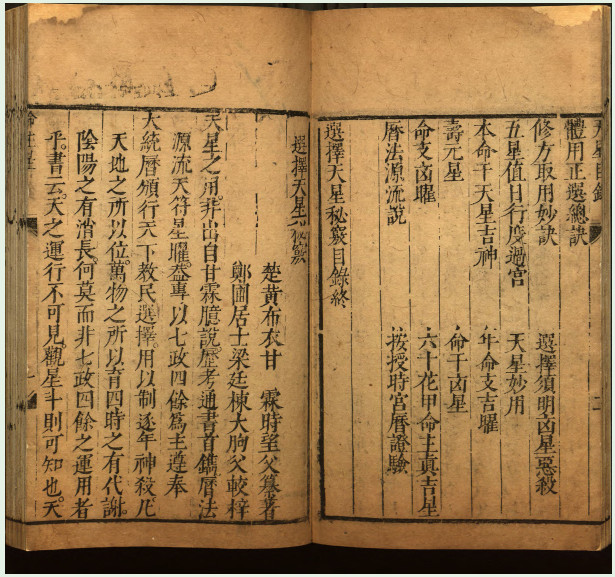 體用正選總訣
修方取用妙訣 選擇須明凶星惡殺
五星值日行度過宮 天星妙用
本命干天星吉神 年命支吉曜
壽元星 命干凶星
命支凶曜 六十花甲命主真吉星
曆法源流說 按授時宮曆證驗
選擇天星秘竅目錄終
選擇天星秘竅
楚黃布衣甘 霖時望父纂著
鄭圃居士梁廷棟大胸父較梓
天星之用非出自甘霖臆說歷考通書首鐫曆法
源流天符星曜葢專以七政四餘爲主遵奉
大統曆頒行天下教民選擇用以制逐年神殺凡
天地之所以位萬物之所以育四時之有代謝
陰陽之有消長何莫而非七政四餘之運用者
乎書云天之運行不可見觀星斗則可知也天